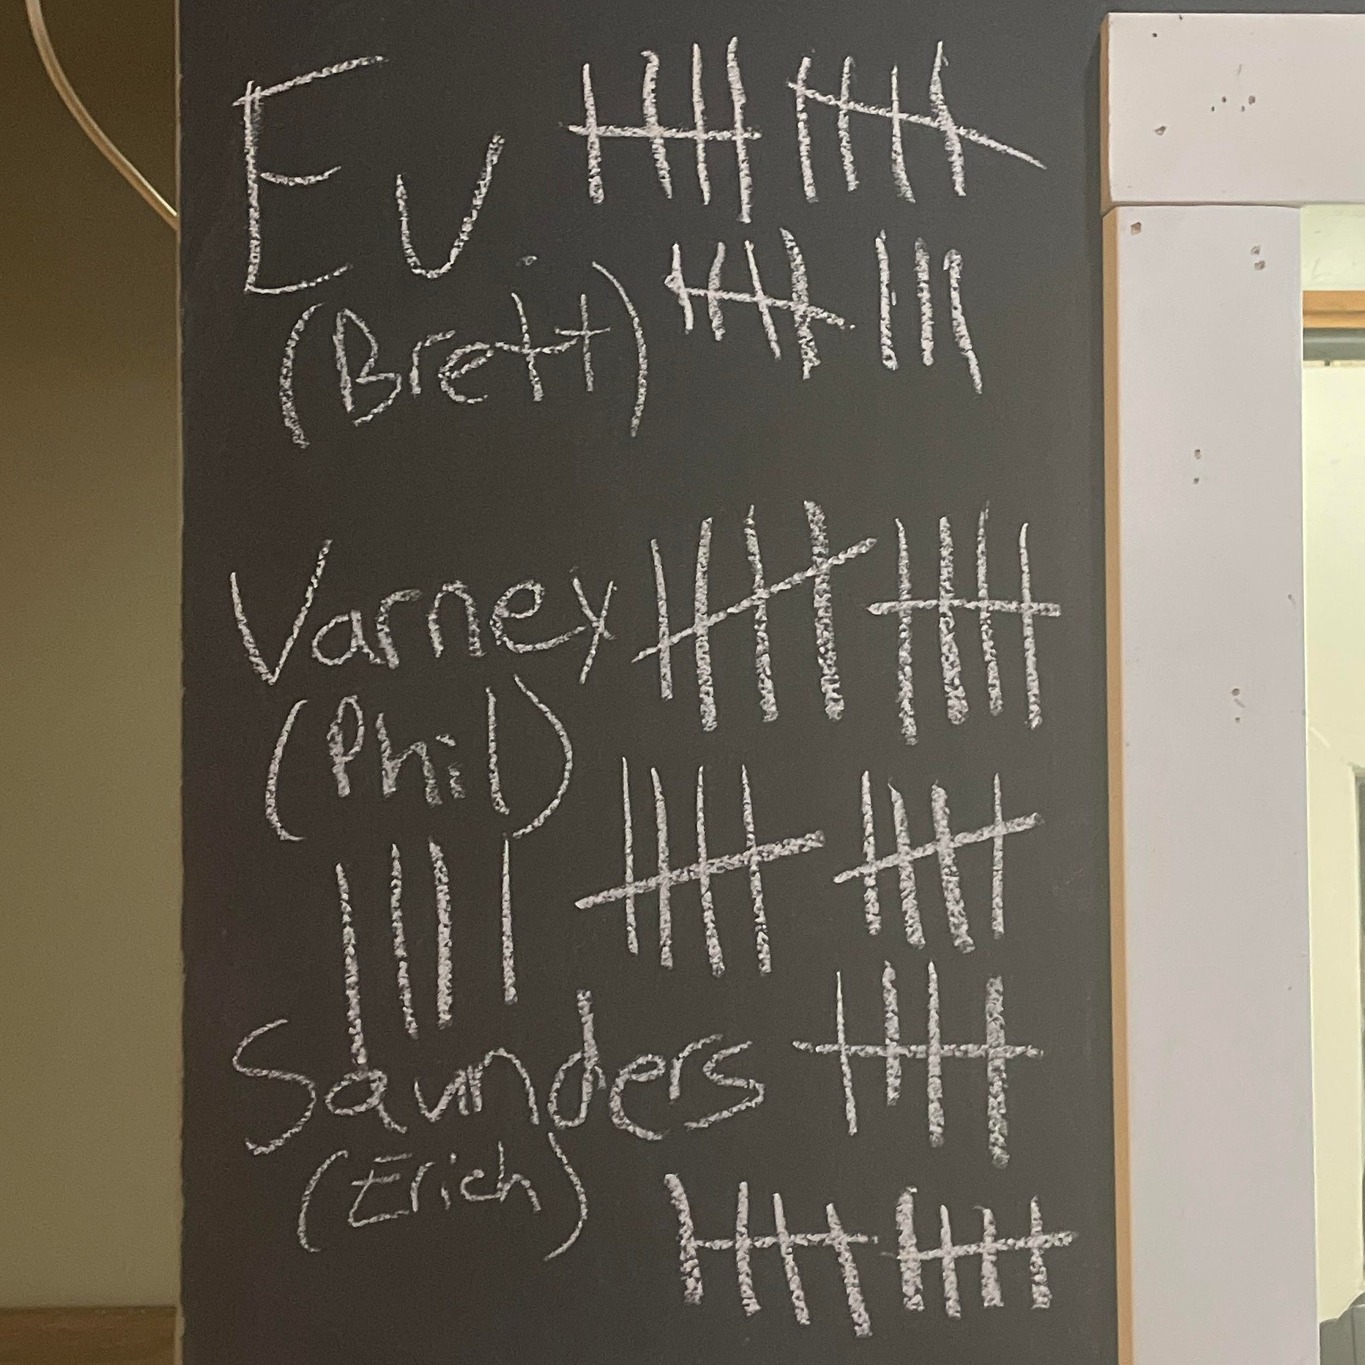 Eu
(Brett)
Varney
(Phil)
Saunders
(Erich)